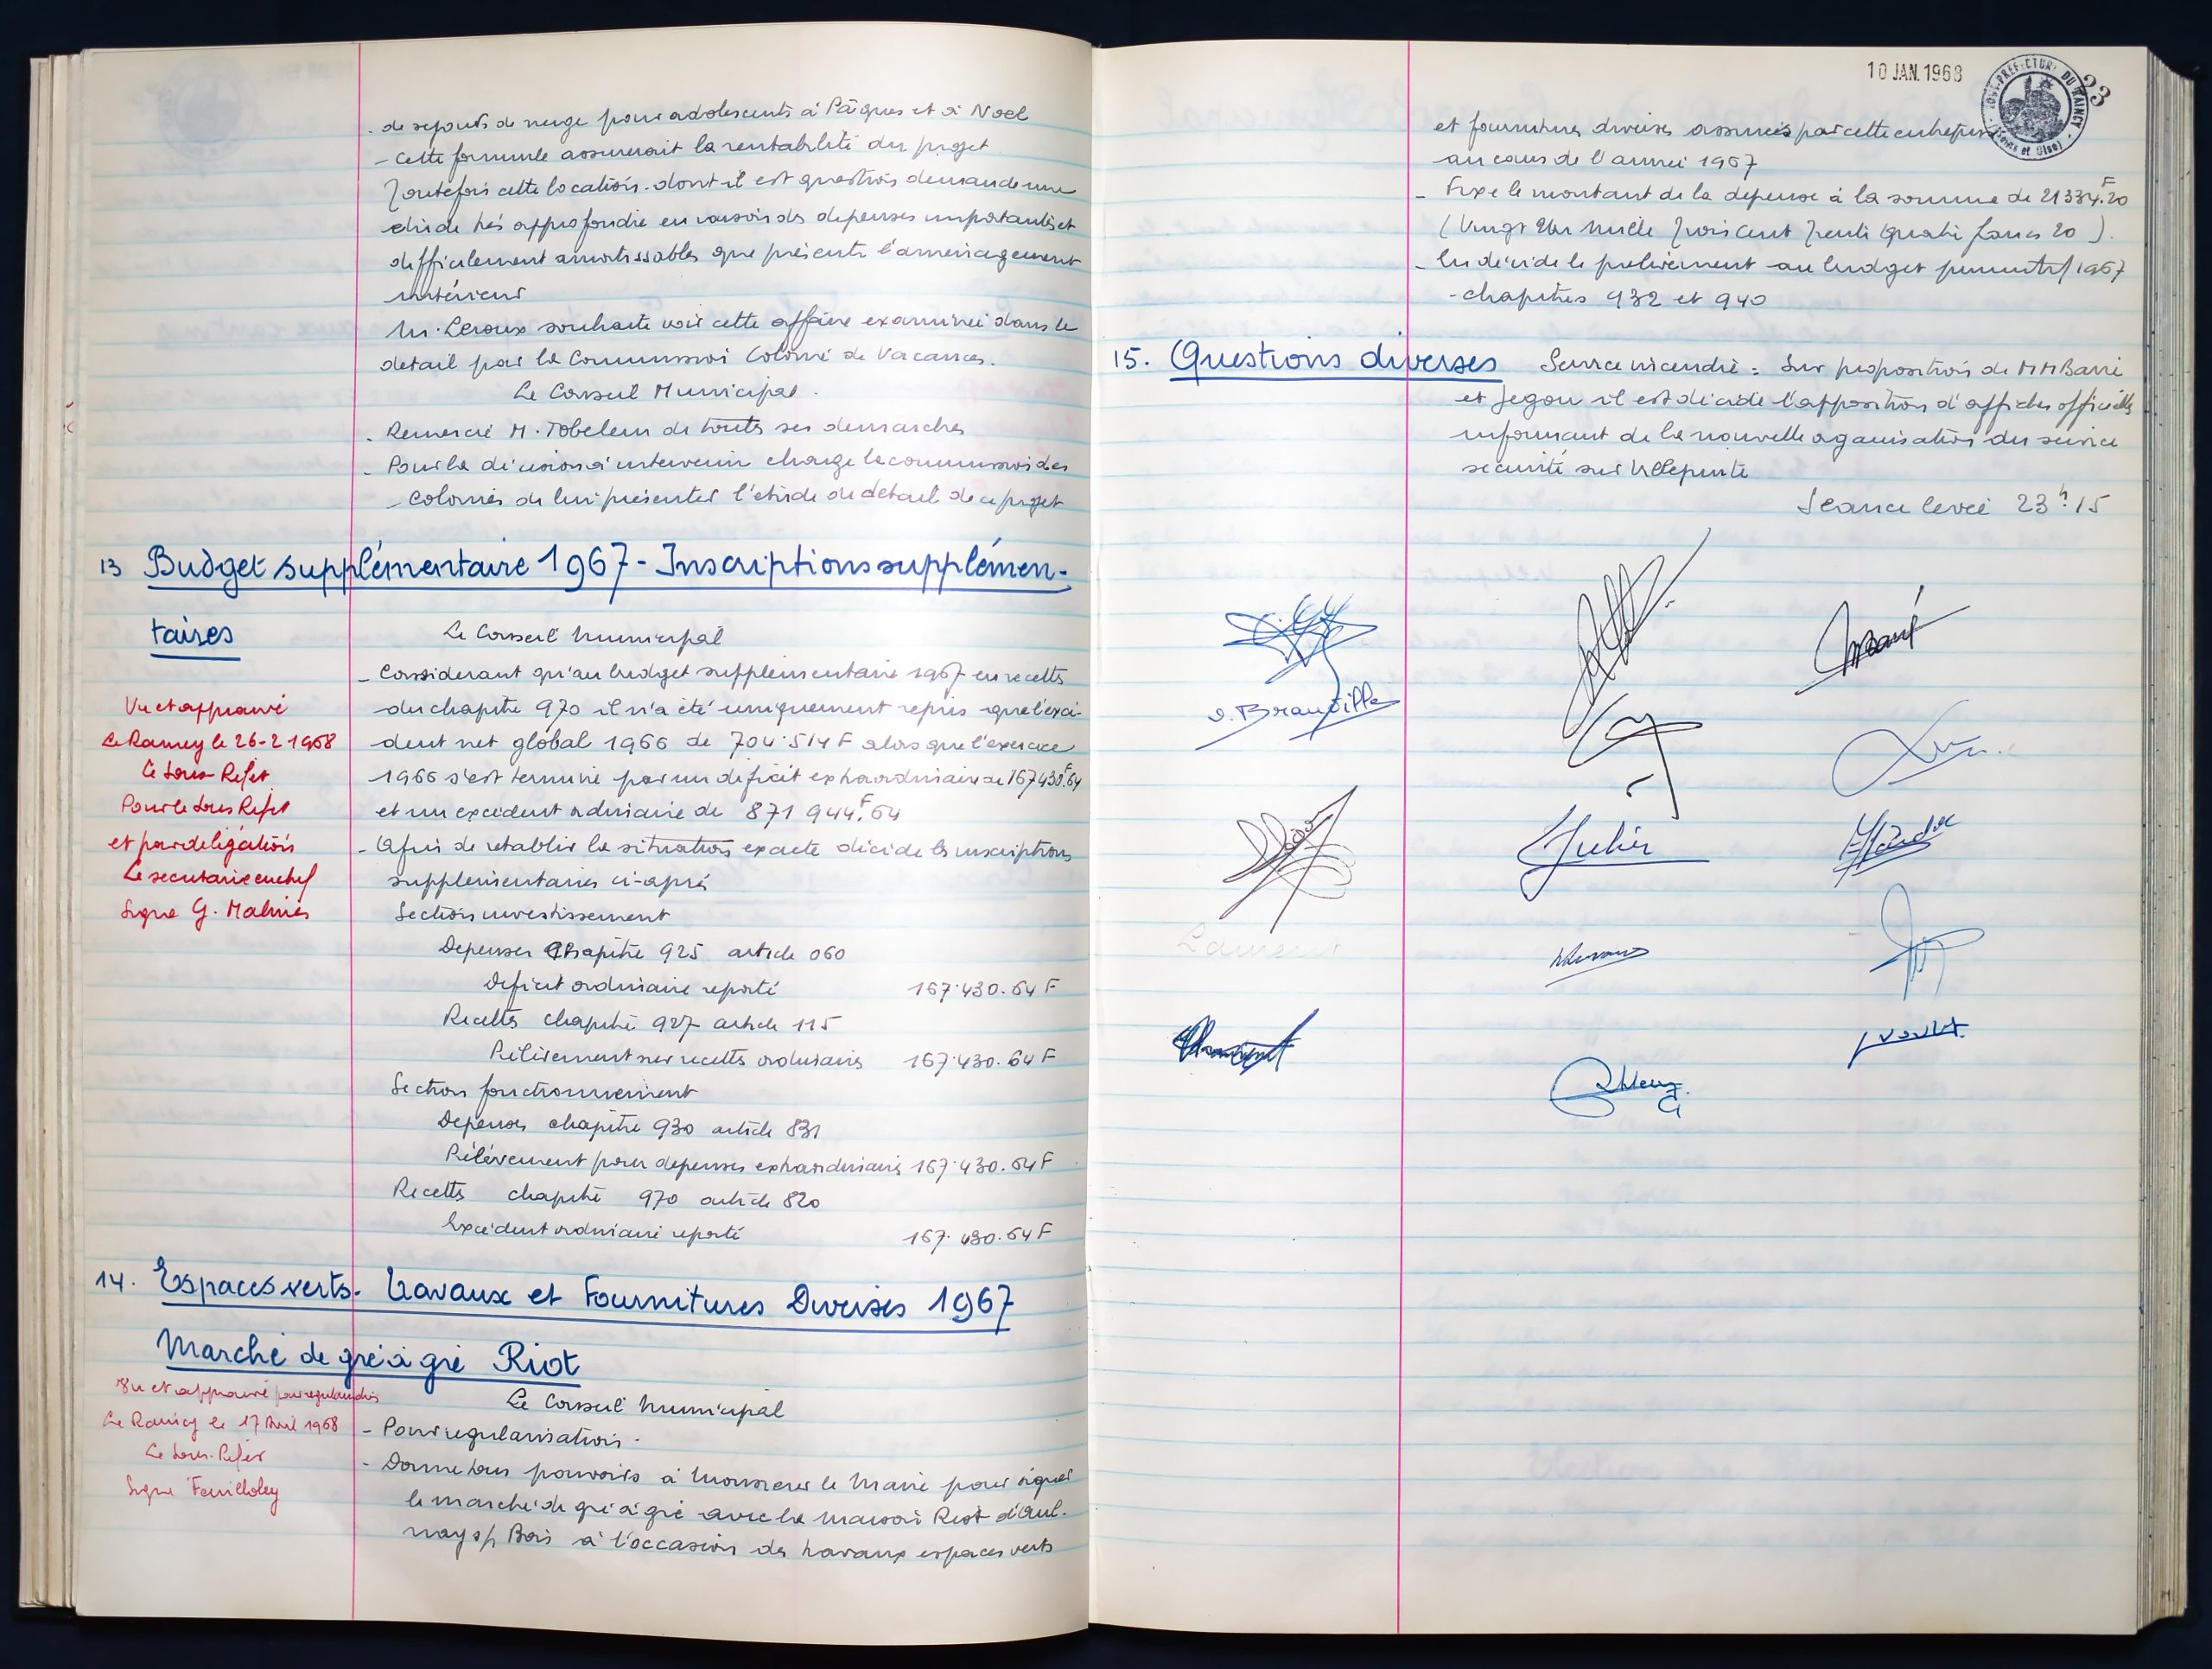 . de sejours de neige pour adolescents à Pâques et à Noel
- Cette formule assurerait la rentabilité du projet
Toutefois cette location dont il est question demande une
etude très approfondie en raison des depenses importantes et
difficilement amortissables que présente l'aménagement
interieur
M. Leroux souhaite voir cette affaire examinée dans le
detail par la Commission Colonie de Vacances.
Le Conseil Municipal.
- Remercie M. Tobelem de toutes ses demarches
- Pour la décision à intervenir charge la commission des
- Colonies de lui présenter l'étude de detail de ce projet
13 Budget supplémentaire 1967 - Inscriptions supplémen-
taires
Le Conseil Municipal
- Considerant qu'au budget supplementaire 1967 en recettes
du chapitre 970 il n'a été uniquement repris que l'excé-
dent net global 1966 de 704.514 F alors que l'exercice
1966 s'est terminé par un déficit extraordinaire de 167430F.64
et un excédent ordinaire de 871 944F.64
- Afin de retablir la situation exacte décide les inscriptions
supplementaires ci-après
Section investissement
Depenses Chapitre 925 article 060
Deficit ordinaire reporté 167.430.64 F
Recettes chapitre 927 article 115
Prélèvement sur recettes ordinaires 167.430.64 F
Section fonctionnement
Depenses chapitre 930 article 831
Prélèvement pour depenses extraordinaires 167.430.64 F
Recettes chapitre 970 article 820
Excédent ordinaire reporté 167.430.64 F
Vu et approuvé
Le Raincy le 26-2 1968
Le Sous-Prefet
Pour le Sous Prefet
et par délégation
Le secretaire en chef
Signé G. Malinès
14. Espaces verts. Travaux et Fournitures Diverses 1967
Marché de gré à gré Riot
Vu et approuvé pour régularisation
Le Raincy le 17 Avril 1968
Le Sous-Préfet
Signé Feuilloley
Le Conseil Municipal
- Pour regularisation.
- Donne tous pouvoirs à Monsieur le Maire pour signer
le marché de gré à gré avec la maison Riot d'Aul-
nay s/ Bois à l'occasion des travaux espaces verts
10 JAN. 1968
23
SOUS-PRÉFECTURE DU RAINCY
(Seine et Oise)
et fournitures diverses assurées par cette entreprise
au cours de l'année 1967
- Fixe le montant de la depense à la somme de 21334F.20
(Vingt Un Mille Trois Cent Trente Quatre francs 20).
- En décide le prelèvement au budget primitif 1967
- chapitres 932 et 940
15. Questions diverses Service incendie : Sur proposition de MM Barré
et Jegou il est décidé l'apposition d'affiches officielles
informant de la nouvelle organisation du service
sécurité sur Villepinte
Séance levée 23h.15